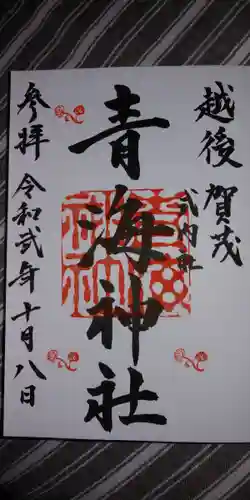 越後賀茂
式内社
青海神社
参拝
令和弐年十月八日